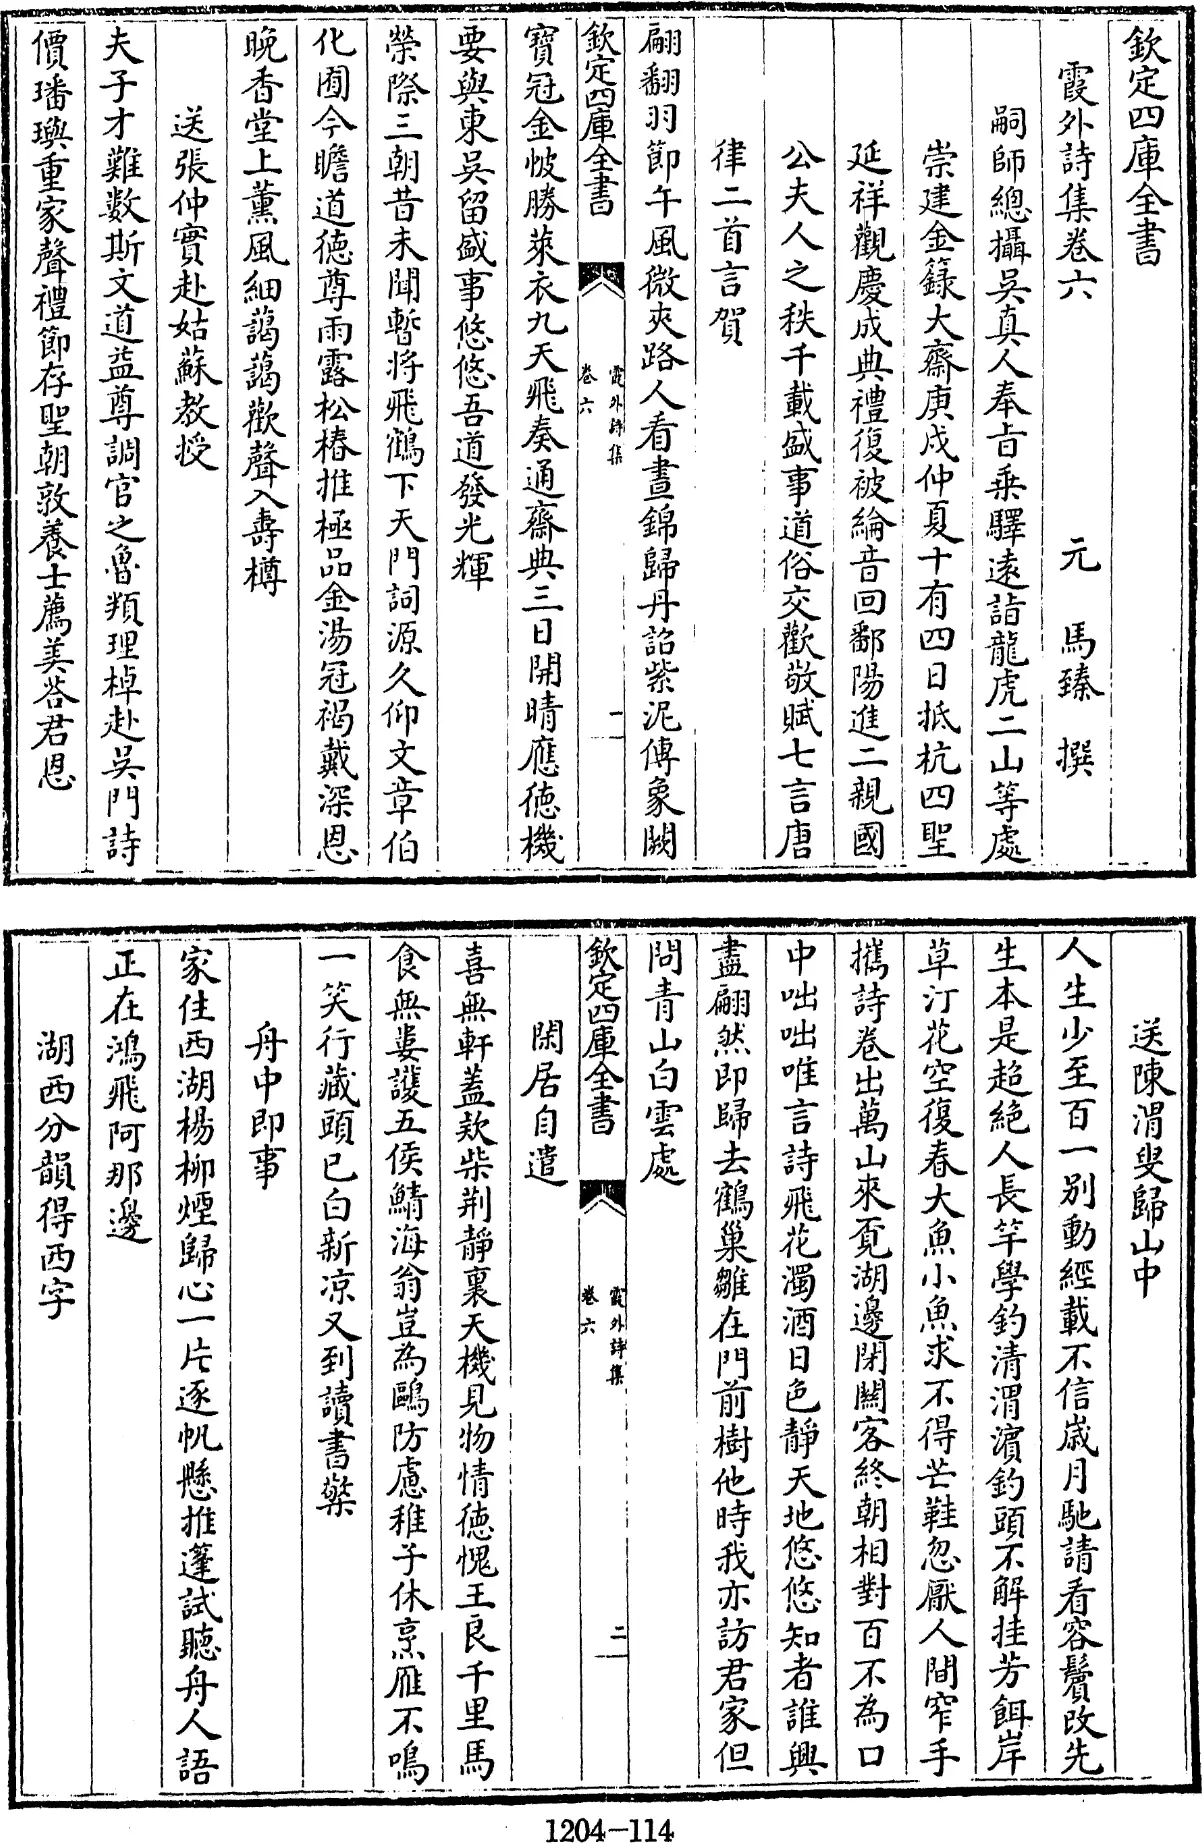 欽定四庫全書
霞外詩集卷六
元 馬臻 撰
嗣師總攝吳真人奉旨乗驛遠詣龍虎二山等處
崇建金籙大齋庚戌仲夏十有四日抵杭四聖
延祥觀慶成典禮復被綸音回鄱陽進二親國
公夫人之秩千載盛事道俗交歡敬賦七言唐
律二首言賀
翩翻羽節午風微夾路人看晝錦歸丹詔紫泥傳象闕
欽定四庫全書
霞外詩集
卷六
一
寳冠金帔勝萊衣九天飛奏通齋典三日開晴應徳機
要與東吳留盛事悠悠吾道發光輝
榮際三朝昔未聞暫将飛鶴下天門詞源久仰文章伯
化囿今瞻道德尊雨露松椿推極品金湯冠褐戴深恩
晚香堂上薰風細藹藹歡聲入壽樽
送張仲實赴姑蘇教授
夫子才難數斯文道益尊調官之魯類理棹赴吳門詩
價璠璵重家聲禮節存聖朝敦養士薦美答君恩
送陳渭叟歸山中
人生少至百一別動經載不信歳月馳請看容鬢改先
生本是超絶人長竿學釣清渭濵釣頭不解挂芳餌岸
草汀花空復春大魚小魚求不得芒鞋忽厭人間窄手
攜詩卷出萬山來覓湖邊閉闗客終朝相對百不為口
中咄咄唯言詩飛花濁酒日色靜天地悠悠知者誰興
盡翩然即歸去鶴巢雛在門前樹他時我亦訪君家但
問青山白雲處
欽定四庫全書
霞外詩集
卷六
二
閑居自遣
喜無軒蓋欵柴荆靜裏天機見物情徳愧王良千里馬
食無婁䕶五侯鯖海翁豈為鷗防慮稚子休烹雁不鳴
一笑行藏頭已白新凉又到讀書檠
舟中即事
家住西湖楊柳煙歸心一片逐帆懸推篷試聽舟人語
正在鴻飛阿那邊
湖西分韻得西字
1204-114